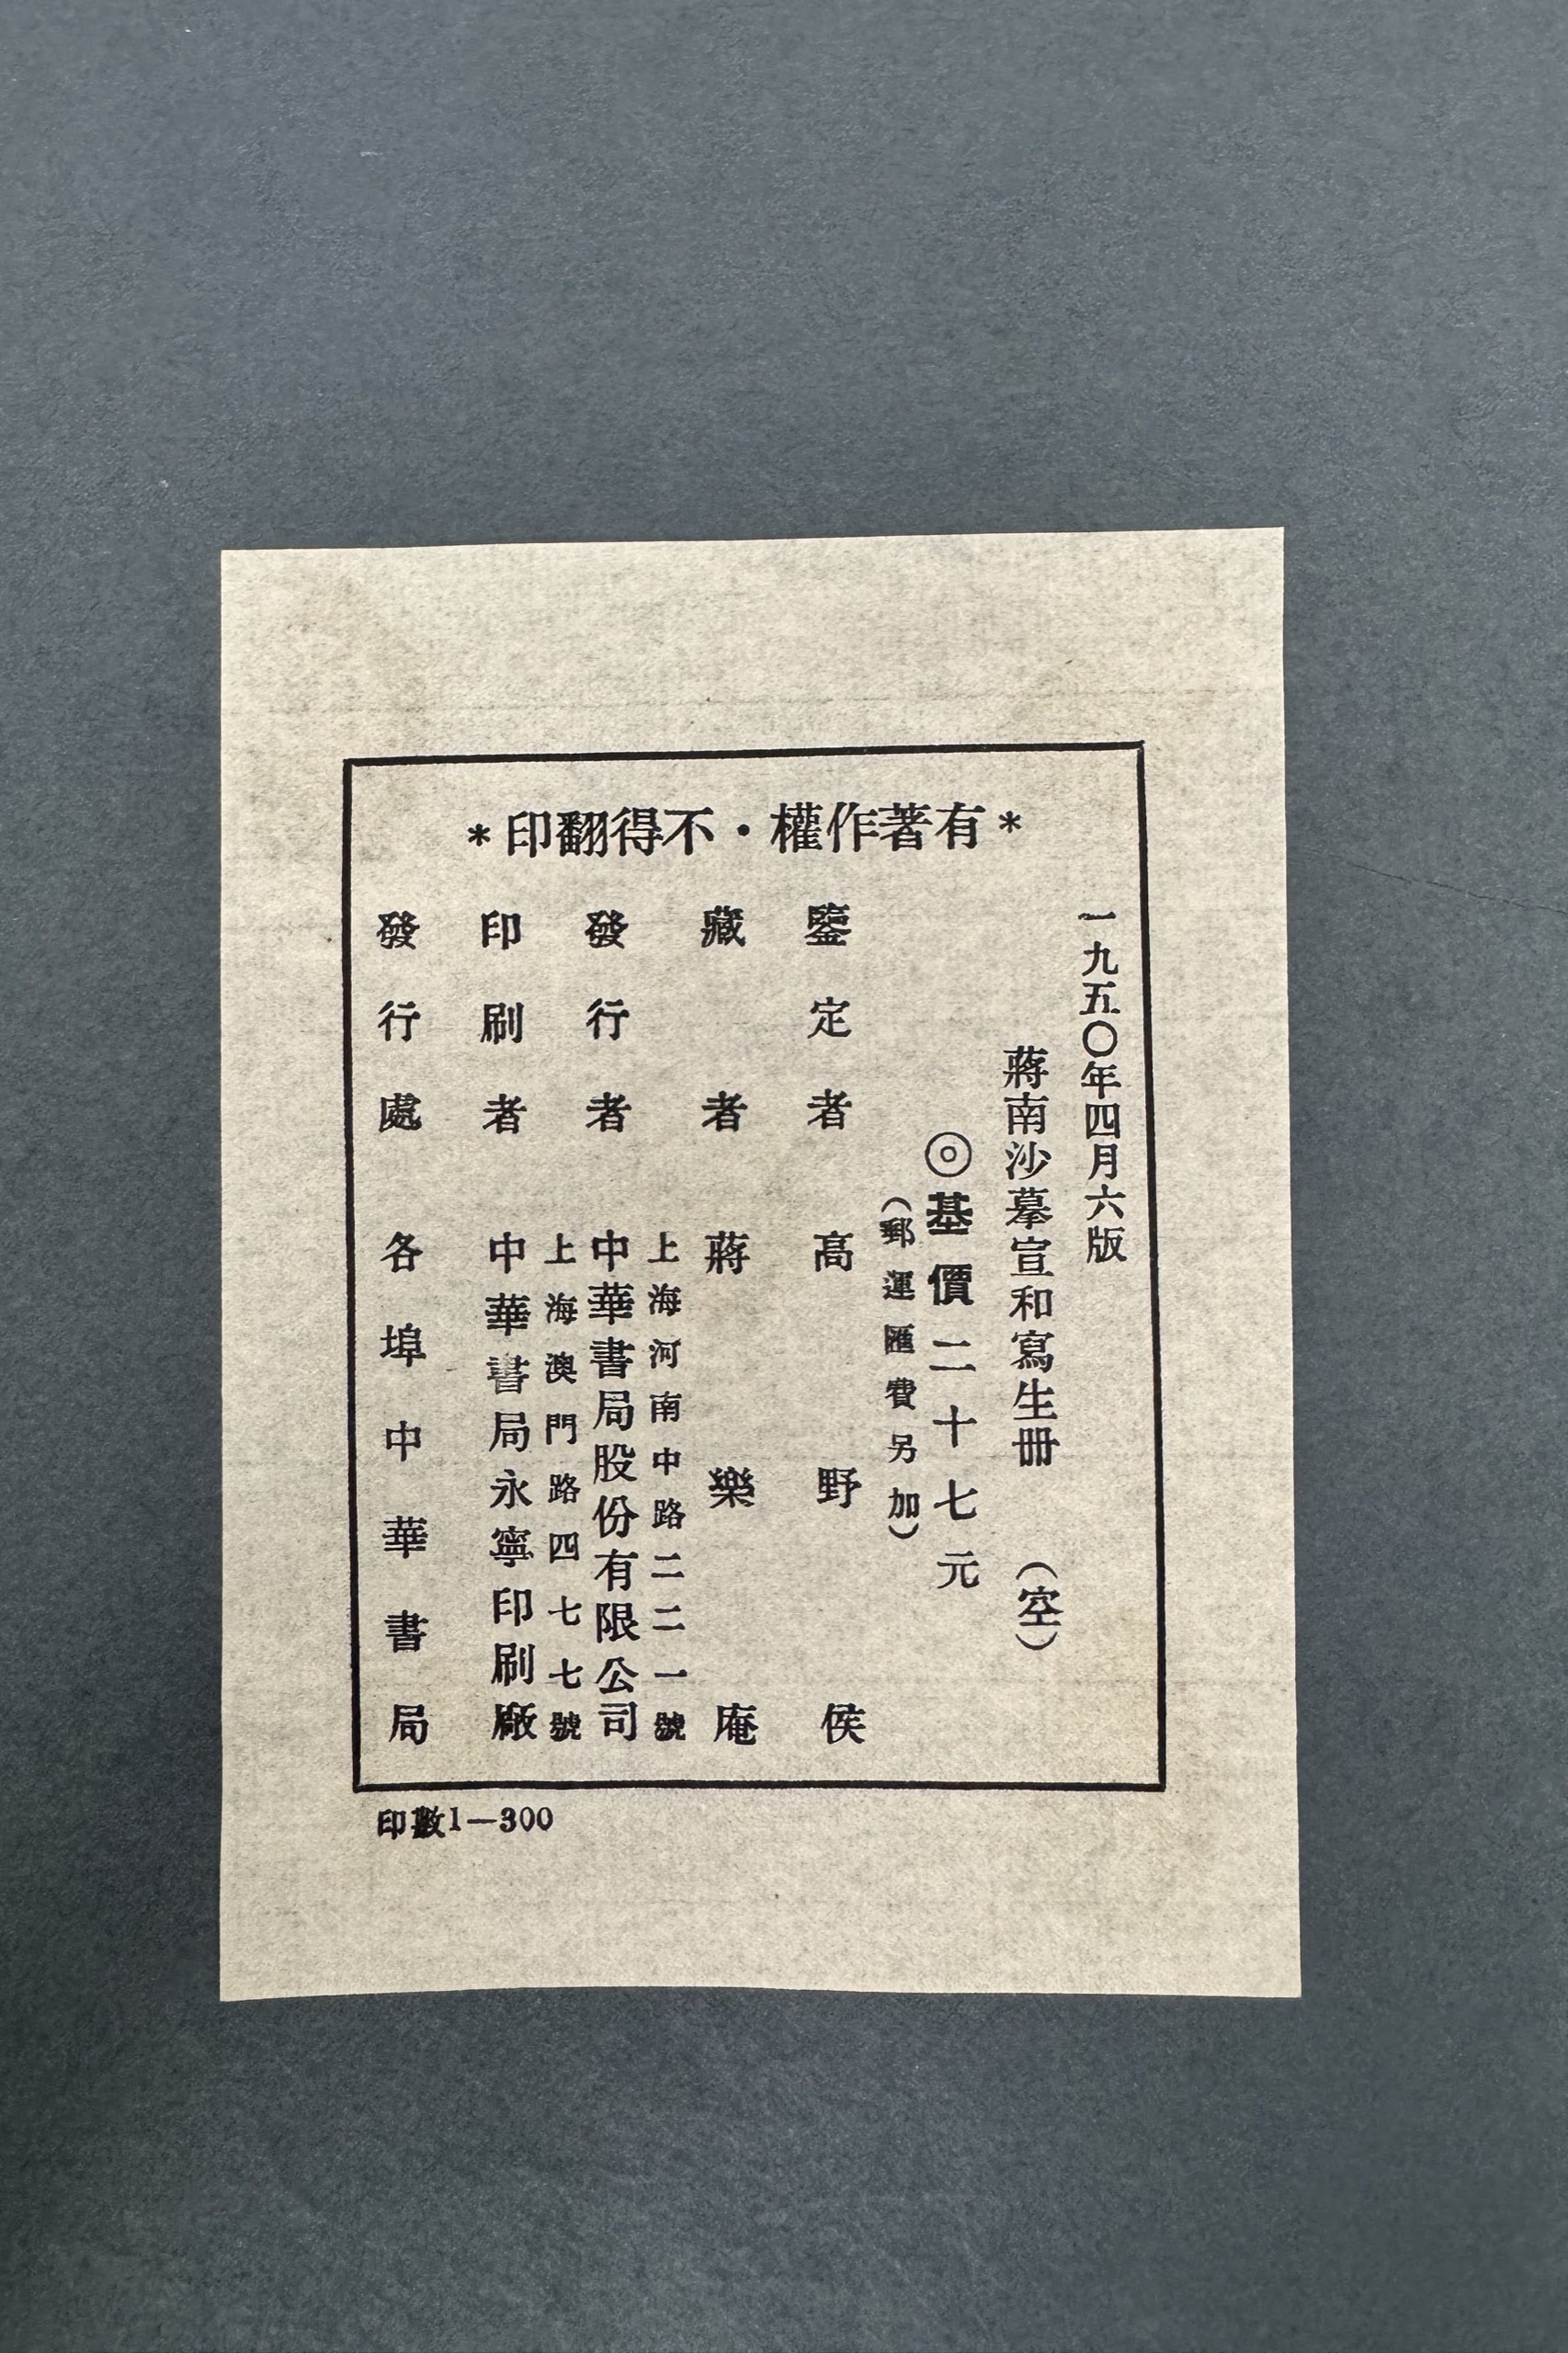 ＊有著作權・不得翻印＊
一九五〇年四月六版
蔣南沙摹宣和寫生冊 （空）
◎基價二十七元
（郵運匯費另加）
鑒定者 高野侯
藏者 蔣樂庵
上海河南中路二二一號
發行者 中華書局股份有限公司
上海澳門路四七七號
印刷者 中華書局永寧印刷廠
發行處 各埠中華書局
印數1—300